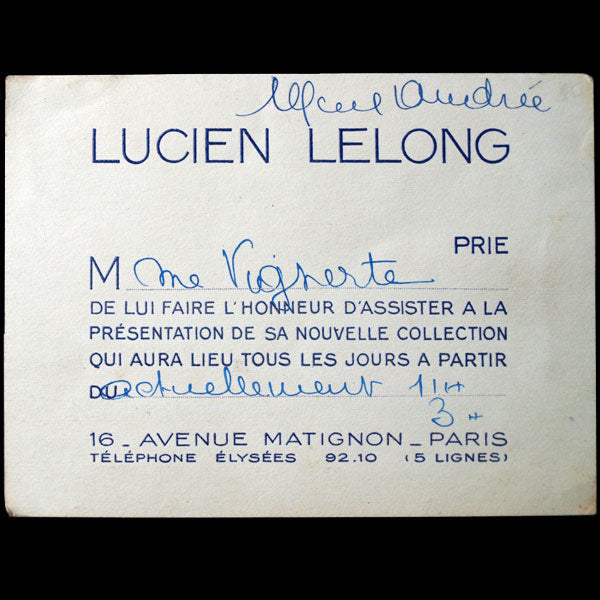 Andrée
LUCIEN LELONG
PRIE
Mme Vignerte
DE LUI FAIRE L'HONNEUR D'ASSISTER A LA
PRÉSENTATION DE SA NOUVELLE COLLECTION
QUI AURA LIEU TOUS LES JOURS A PARTIR
DU actuellement 11H
3H
16_AVENUE MATIGNON_PARIS
TÉLÉPHONE ÉLYSÉES 92.10 (5 LIGNES)